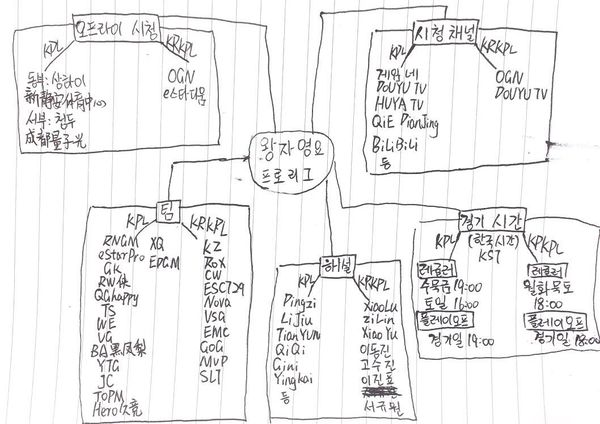 오프라이 시청
KPL
KRKPL
동부: 상하이
新静安体育中心
서부: 청두
成都量子光
OGN
e스타디움
시청 채널
KPL
KRKPL
게임 내
DOUYU TV
HUYA TV
QiE DianJing
BiLiBiLi
등
OGN
DOUYU TV
왕자영요
프로리그
팀
KPL
KRKPL
RNGM
eStarPro
GK
RW侠
QGhappy
TS
WE
VG
BA黑凤梨
YTG
JC
TOPM
Hero久竞
XQ
EDGM
KZ
ROX
CW
ESC729
Nova
VSG
EMC
GOG
MVP
SLT
해설
KPL
KRKPL
Pingzi
LiJiu
TianYUN
QiQi
Gini
Yingkai
등
XiaoLu
ZiLin
XiaoYu
이동진
고수진
이진표
서규원
경기 시간
(한국시간)
KST
KPL
KPKPL
레귤러
수목금 19:00
토일 16:00
플레이오프
경기일 19:00
레귤러
월화목토
18:00
플레이오프
경기일 18:00